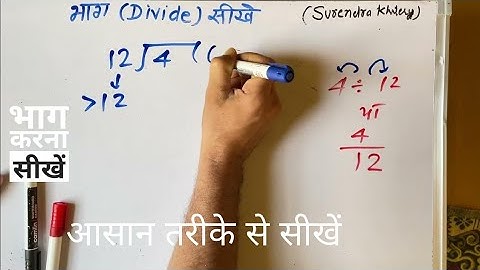 भाग (Divide) सीखे
(Surendra Khilery)
12)4(
>12
4÷12
या
4
12
भाग
करना
सीखें
आसान तरीके से सीखें